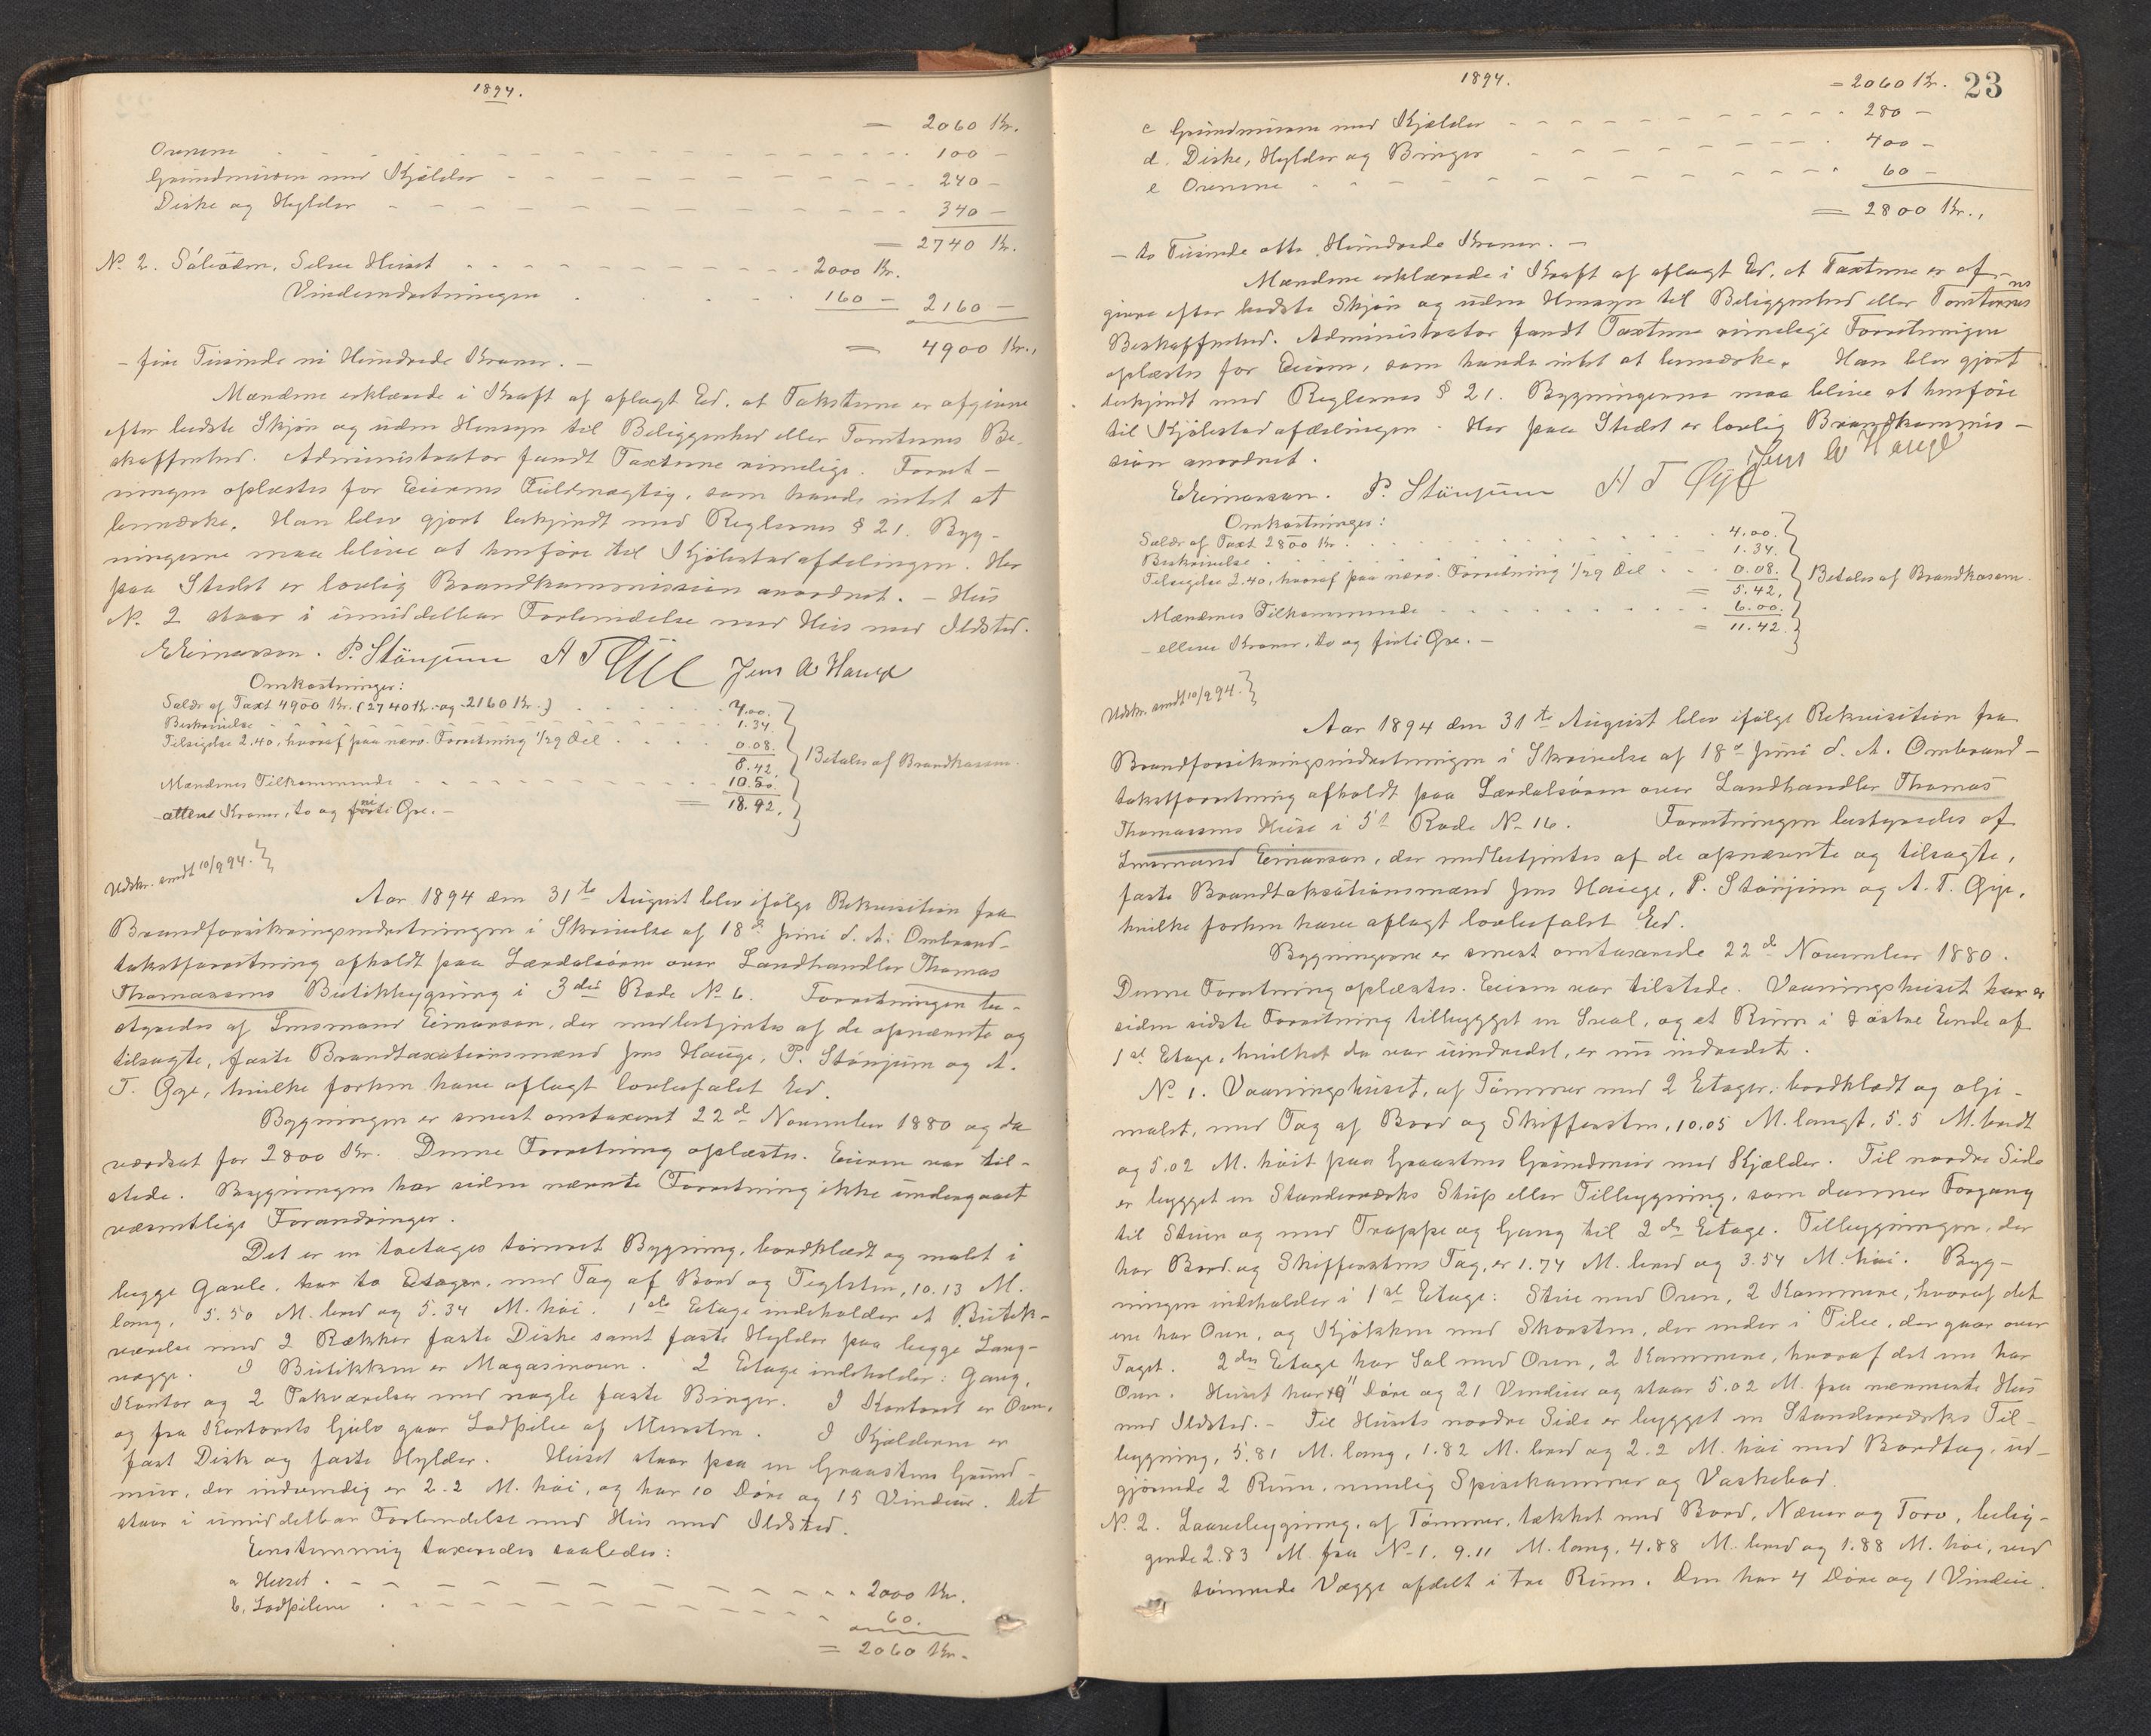 1894.
= 2060 Kr.
Ovnene 100 -
Grundmuren med Kjælder 240 -
Diske og Hylder 340 -
= 2740 Kr.
No 2. Søboden, Selve Huset 2000 Kr.
Vindeindretningen 160 - 2160 -
= 4900 Kr.,
- fire Tusinde ni Hundrede Kroner. -
Mændene erklærede i Kraft af aflagt Ed, at Taksterne er afgivne
efter bedste Skjøn og uden Hensyn til Beliggenhed eller Tomternes Be-
skaffenhed. Administrator fandt Taxterne rimelige. Forret-
ningen oplæstes for Eierens Fuldmægtig, som havde intet at
bemærke. Han blev gjort bekjendt med Reglernes § 21. Byg-
ningerne maa blive at henføre til Kjøbstadafdelingen. Her
paa Stedet er lovlig Brandkommission anordnet. - Hus
No 2 staar i umiddelbar Forbindelse med Hus med Ildsted.
E Eimarson. P. Stönjum A T Øye Jens A Hauge
Omkostninger:
Salær af Taxt 4900 Kr. (2740 Kr. og 2160 Kr.) 7.00.
Beskrivelse 1.34.
Tilsigelse 2.40, hvoraf paa nærv. Forretning 1/29 Del 0.08.
8.42.
Mændenes Tilkommende 10.50.
= 18.92.
Betales af Brandkassen.
- atten Kroner, to og niti Øre. -
Udskr. sendt 10/9 94.
Aar 1894 den 31te August blev ifølge Rekvisition fra
Brandforsikringsindretningen i Skrivelse af 18de Juni d. A. Ombrand-
takstforretning afholdt paa Lærdalsøren over Landhandler Thomas
Thomassens Butikbygning i 3die Rode No 6. Forretningen be-
styredes af Lensmand Eimarson, der medbetjentes af de opnævnte og
tilsagte, faste Brandtaxationsmænd Jens Hauge, P. Stönjum og A.
T. Øye, hvilke forhen have aflagt lovbefalet Ed.
Bygningen er senest omtaxeret 22de November 1880 og da
værdsat for 2800 Kr. Denne Forretning oplæstes. Eieren var til-
stede. Bygningen har siden nævnte Forretning ikke undergaaet
væsentlige Forandringer.
Det er en toetages tømret Bygning, bordklædt og malet i
begge Gavle, har to Etager, med Tag af Bord og Teglsten, 10.13 M.
lang, 5.50 M. bred og 5.34 M. høi. 1ste Etage indeholder et Butik-
værelse med 2 Rækker faste Diske samt faste Hylder paa begge Lang-
vægge. I Butikken er Magasinovn. 2 Etage indeholder: Gang,
Kontor og 2 Pakværelser med nogle faste Binger. I Kontoret er Ovn,
og fra Kontorets Gulv gaar Lodpibe af Mursten. I Kjælderen er
fast Disk og faste Hylder. Huset staar paa en Graastens Grund-
mur, der indvendig er 2.2 M. høi, og har 10 Døre og 15 Vinduer. Det
staar i umiddelbar Forbindelse med Hus med Ildsted.
Enstemmig taxeredes saaledes:
a Huset 2000 Kr.
b. Lodpiben 60.
= 2060 Kr.
1894.
= 2060 Kr. 23
c Grundmuren med Kjælder 280 -
d. Diske, Hylder og Binger 400 -
e Ovnene 60 -
= 2800 Kr.,
- to Tusinde otte Hundrede Kroner. -
Mændene erklærede i Kraft af aflagt Ed, at Taxterne er af-
givne efter bedste Skjøn og uden Hensyn til Beliggenhed eller Tomternes
Beskaffenhed. Administrator fandt Taxterne rimelige Forretningen
oplæstes for Eieren, som havde intet at bemærke. Han blev gjort
bekjendt med Reglernes § 21. Bygningerne maa blive at henføre
til Kjøbstadafdelingen. Her paa Stedet er lovlig Brandkommis-
sion anordnet.
E Eimarson. P. Stönjum A T Øye Jens A Hauge
Omkostninger:
Salær af Taxt 2800 Kr. 4.00.
Beskrivelse 1.34.
Tilsigelse 2.40, hvoraf paa nærv. Forretning 1/29 Del 0.08.
= 5.42.
Mændenes Tilkommende 6.00.
= 11.42.
Betales af Brandkassen.
- elleve Kroner, to og firti Øre. -
Udskr. sendt 10/9 94.
Aar 1894 den 31te August blev ifølge Rekvisition fra
Brandforsikringsindretningen i Skrivelse af 18de Juni d. A. Ombrand-
takstforretning afholdt paa Lærdalsøren over Landhandler Thomas
Thomassens Huse i 5te Rode No 16. Forretningen bestyredes af
Lensmand Eimarson, der medbetjentes af de opnævnte og tilsagte,
faste Brandtaksationsmænd Jens Hauge, P. Stönjum og A. T. Øye,
hvilke forhen have aflagt lovbefalet Ed.
Bygningerne er senest omtaxerede 22de November 1880.
Denne Forretning oplæstes. Eieren var tilstede. Vaaningshuset er
siden sidste Forretning tilbygget en Sval, og et Rum i østre Ende af
1ste Etage, hvilket da var uindredet, er nu indredet.
No 1. Vaaningshuset, af Tømmer med 2 Etager, bordklædt og olje-
malet, med Tag af Bord og Skiffersten, 10.05 M. langt, 5.5 M. bredt
og 5.02 M. høit paa Graastens Grundmur med Kjælder. Til nordre Side
er bygget en Stenderværks Skup eller Tilbygning, som danner Forgang
til Stuen og med Trappe og Gang til 2den Etage. Tilbygningen, der
har Bord og Skifferstens Tag, er 1.74 M. bred og 3.54 M. høi. Byg-
ningen indeholder i 1ste Etage: Stue med Ovn, 2 Kammere, hvoraf det
ene har Ovn, og Kjøkken med Skorsten, der ender i Pibe, der gaar over
Taget. 2den Etage har Sal med Ovn, 2 Kammere, hvoraf det ene har
Ovn. Huset har 11 Døre og 21 Vinduer og staar 5.02 M. fra nærmeste Hus
med Ildsted. - Til Husets nordre Side er bygget en Stenderværks Til-
bygning, 5.81 M. lang, 1.82 M. bred og 2.2 M. høi med Bordtag, ud-
gjørende 2 Rum, nemlig Spisekammer og Vaskebod.
No 2. Laavebygning, af Tømmer, tækket med Bord, Næver og Torv, belig-
gende 2.83 M. fra No 1, 9.11 M. lang, 4.88 M. bred og 1.88 M. høi, ved
tømrede Vægge afdelt i tre Rum. Den har 4 Døre og 1 Vindue.